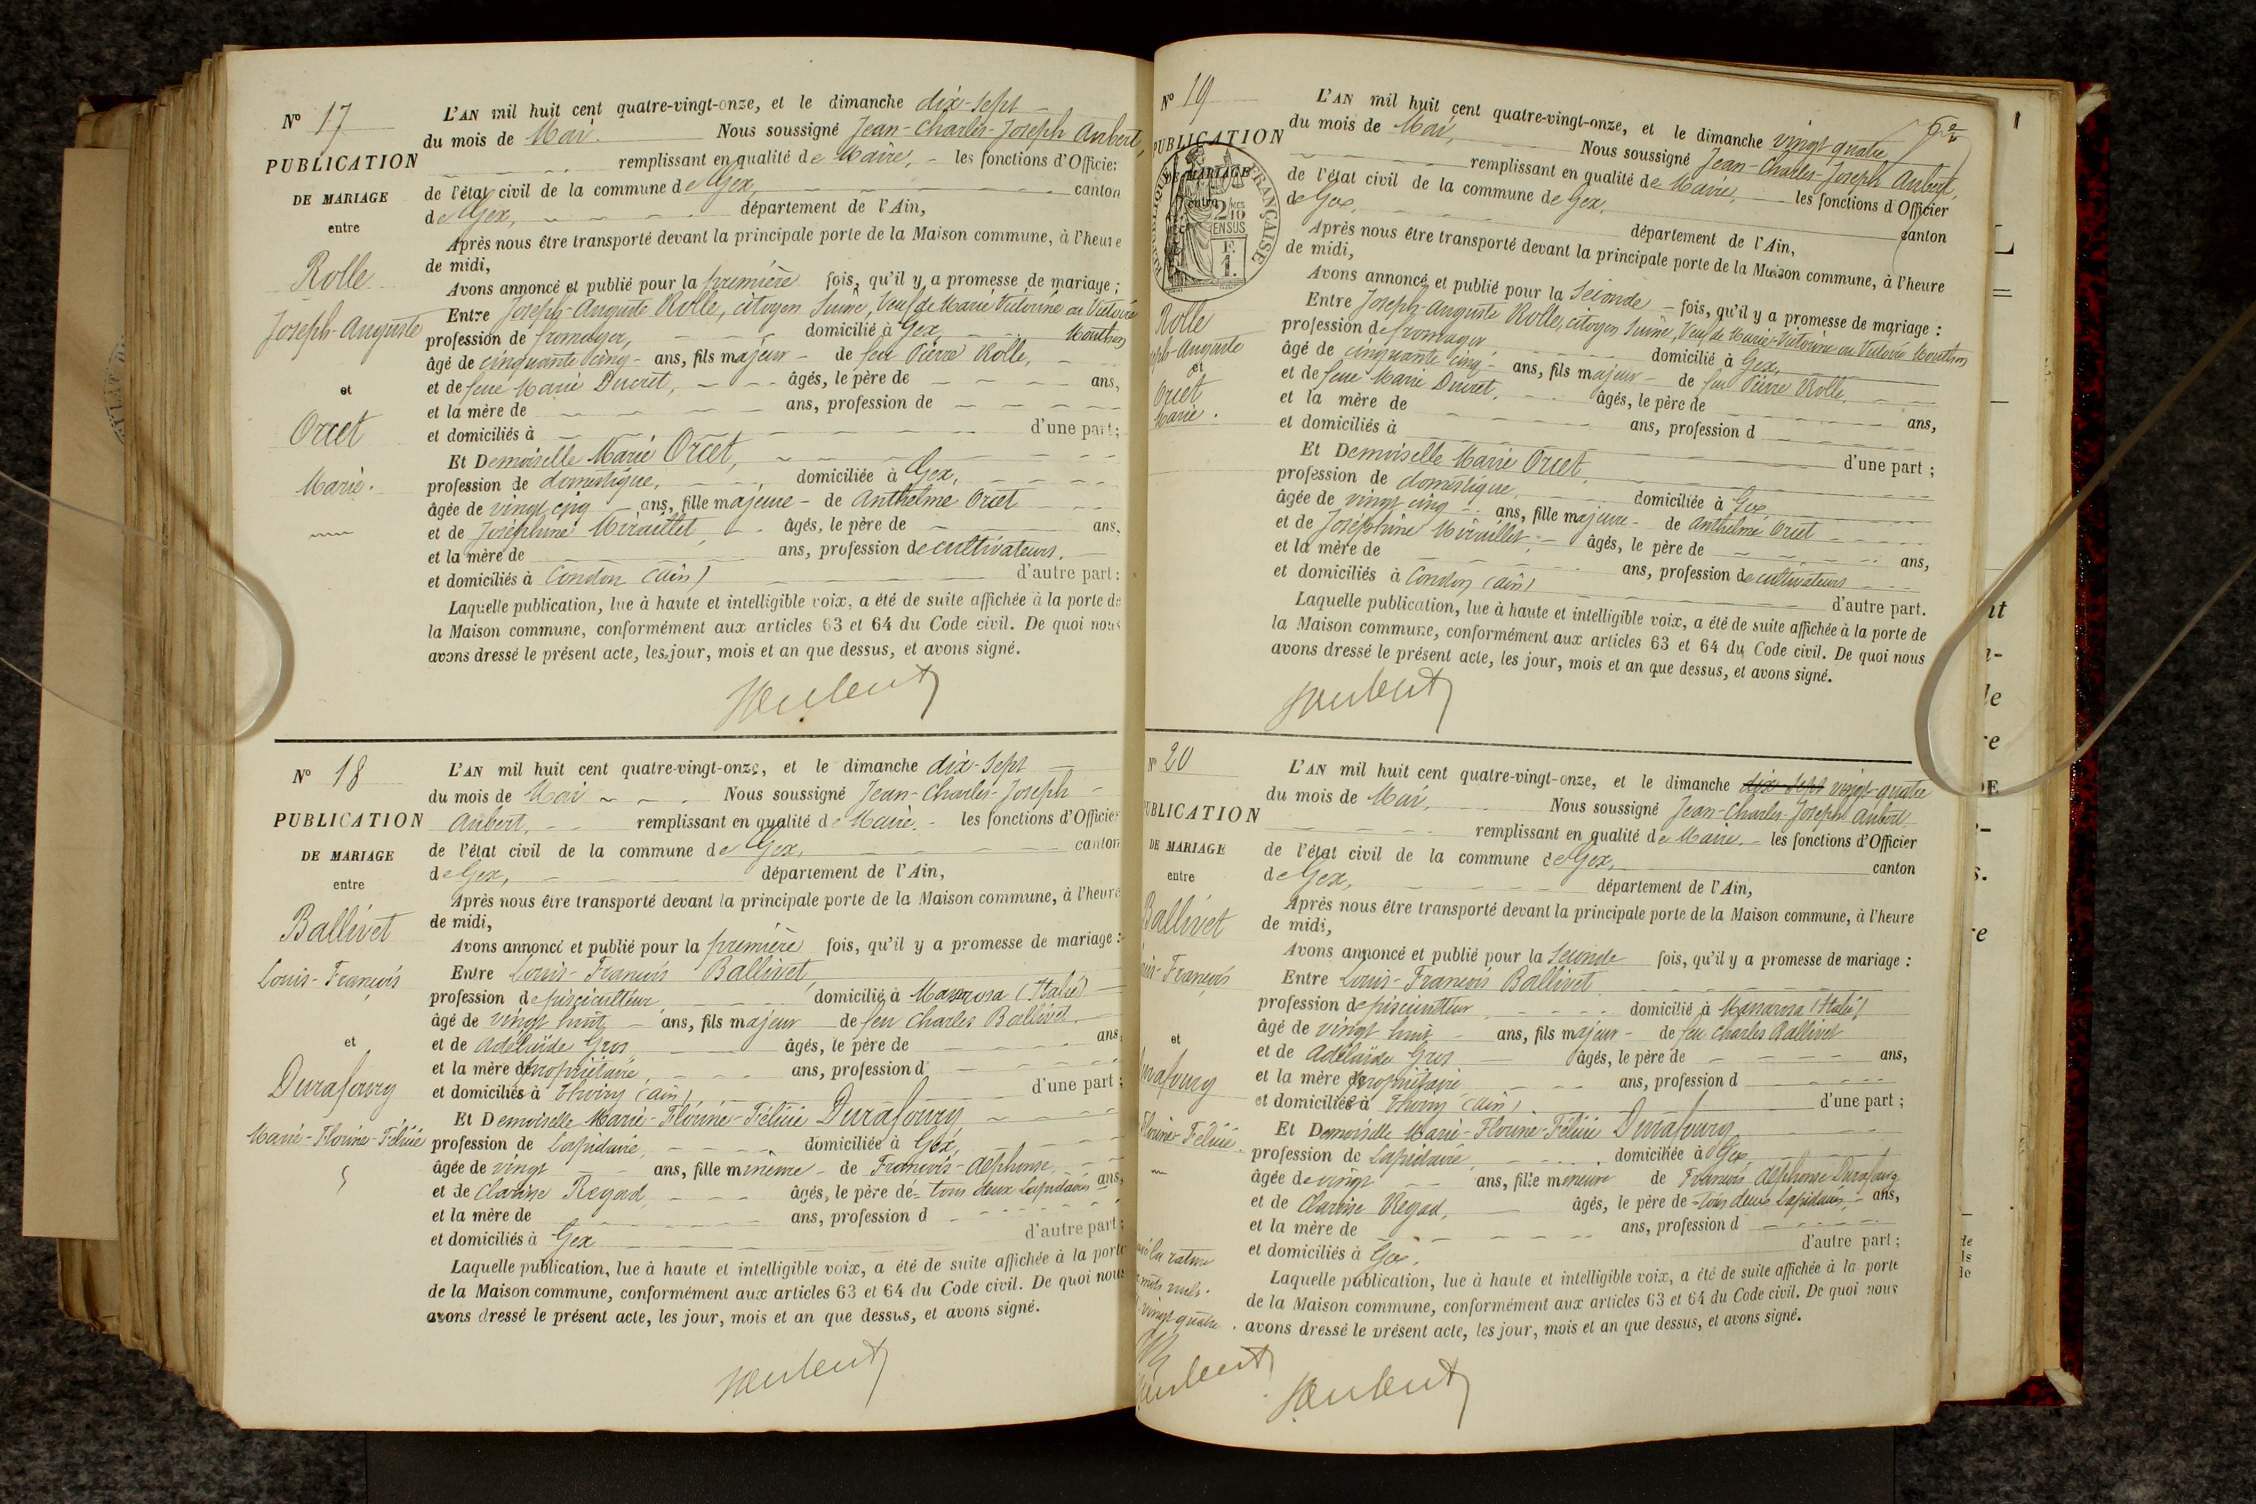 N° 17
PUBLICATION
DE MARIAGE
entre
Rolle
Joseph-Auguste
et
Orcet
Marie.
L'AN mil huit cent quatre-vingt-onze, et le dimanche dix-sept
du mois de Mai. Nous soussigné Jean-Charles-Joseph Aubert,
remplissant en qualité de Maire, les fonctions d'Officier
de l'état civil de la commune de Gex, canton
de Gex, département de l'Ain,
Après nous être transporté devant la principale porte de la Maison commune, à l'heure
de midi,
Avons annoncé et publié pour la première fois, qu'il y a promesse de mariage ;
Entre Joseph-Auguste Rolle, citoyen Suisse, Veuf de Marie Victorine ou Victoire
profession de fromager, domicilié à Gex, Mouthon
âgé de cinquante cinq ans, fils majeur de feu Pierre Rolle,
et de feue Marie Ducret, âgés, le père de ans,
et la mère de ans, profession de
et domiciliés à d'une part ;
Et Demoiselle Marie Orcet,
profession de domestique, domiciliée à Gex,
âgée de vingt cinq ans, fille majeure de Anthelme Orcet
et de Joséphine Miraillet, âgés, le père de ans,
et la mère de ans, profession de cultivateurs.
et domiciliés à Condon (Ain) d'autre part :
Laquelle publication, lue à haute et intelligible voix, a été de suite affichée à la porte de
la Maison commune, conformément aux articles 63 et 64 du Code civil. De quoi nous
avons dressé le présent acte, les jour, mois et an que dessus, et avons signé.
JAubert
N° 18
PUBLICATION
DE MARIAGE
entre
Ballivet
Louis-François
et
Durafourg
Marie-Florine-Félicie
L'AN mil huit cent quatre-vingt-onze, et le dimanche dix-sept
du mois de Mai Nous soussigné Jean-Charles-Joseph
Aubert, remplissant en qualité de Maire, les fonctions d'Officier
de l'état civil de la commune de Gex, canton
de Gex, département de l'Ain,
Après nous être transporté devant la principale porte de la Maison commune, à l'heure
de midi,
Avons annoncé et publié pour la première fois, qu'il y a promesse de mariage :
Entre Louis-François Ballivet,
profession de pisciculteur domicilié à (Italie)
âgé de vingt huit ans, fils majeur de feu Charles Ballivet
et de Adélaïde Gros âgés, le père de ans,
et la mère de propriétaire, ans, profession d
et domiciliés à Thoiry (Ain) d'une part ;
Et Demoiselle Marie-Florine-Félicie Durafourg
profession de Lapidaire, domiciliée à Gex,
âgée de vingt ans, fille mineure de François-Alphonse
et de Clarisse Regad, âgés, le père de tous deux lapidaires ans,
et la mère de ans, profession d
et domiciliés à Gex d'autre part ;
Laquelle publication, lue à haute et intelligible voix, a été de suite affichée à la porte
de la Maison commune, conformément aux articles 63 et 64 du Code civil. De quoi nous
avons dressé le présent acte, les jour, mois et an que dessus, et avons signé.
JAubert
N° 19
PUBLICATION
DE MARIAGE
entre
RÉPUBLIQUE FRANÇAISE
Rolle
Auguste
et
Orcet
Marie.
L'AN mil huit cent quatre-vingt-onze, et le dimanche vingt quatre
du mois de Mai, Nous soussigné Jean-Charles-Joseph Aubert,
remplissant en qualité de Maire, les fonctions d'Officier
de l'état civil de la commune de Gex, canton
de Gex, département de l'Ain,
Après nous être transporté devant la principale porte de la Maison commune, à l'heure
de midi,
Avons annoncé et publié pour la Seconde fois, qu'il y a promesse de mariage :
Entre Joseph-Auguste Rolle, citoyen Suisse, Veuf de Marie-Victorine ou Victoire Mouthon
profession de fromager domicilié à Gex,
âgé de cinquante cinq ans, fils majeur de feu Pierre Rolle,
et de feue Marie Ducret, âgés, le père de ans,
et la mère de ans, profession d
et domiciliés à d'une part ;
Et Demoiselle Marie Orcet,
profession de domestique, domiciliée à Gex
âgée de vingt cinq ans, fille majeure de Anthelme Orcet
et de Joséphine Miraillet, âgés, le père de ans,
et la mère de ans, profession de cultivateurs
et domiciliés à Condon (Ain) d'autre part.
Laquelle publication, lue à haute et intelligible voix, a été de suite affichée à la porte de
la Maison commune, conformément aux articles 63 et 64 du Code civil. De quoi nous
avons dressé le présent acte, les jour, mois et an que dessus, et avons signé.
JAubert
N° 20
PUBLICATION
DE MARIAGE
entre
Ballivet
François
et
Durafourg
Florine-Félicie
L'AN mil huit cent quatre-vingt-onze, et le dimanche dix sept vingt-quatre
du mois de Mai, Nous soussigné Jean-Charles-Joseph Aubert,
remplissant en qualité de Maire, les fonctions d'Officier
de l'état civil de la commune de Gex, canton
de Gex, département de l'Ain,
Après nous être transporté devant la principale porte de la Maison commune, à l'heure
de midi,
Avons annoncé et publié pour la Seconde fois, qu'il y a promesse de mariage :
Entre Louis-François Ballivet
profession de pisciculteur domicilié à (Italie)
âgé de vingt huit ans, fils majeur de feu Charles Ballivet
et de Adélaïde Gros âgés, le père de ans,
et la mère de propriétaire ans, profession d
et domiciliés à Thoiry (Ain) d'une part ;
Et Demoiselle Marie-Florine-Félicie Durafourg
profession de Lapidaire, domiciliée à Gex
âgée de vingt ans, fille mineure de François Alphonse Durafourg
et de Clarisse Regad, âgés, le père de tous deux Lapidaires, ans,
et la mère de ans, profession d
et domiciliés à Gex. d'autre part ;
Laquelle publication, lue à haute et intelligible voix, a été de suite affichée à la porte
de la Maison commune, conformément aux articles 63 et 64 du Code civil. De quoi nous
avons dressé le présent acte, les jour, mois et an que dessus, et avons signé.
la rature
mots nuls.
vingt quatre.
JAubert
JAubert